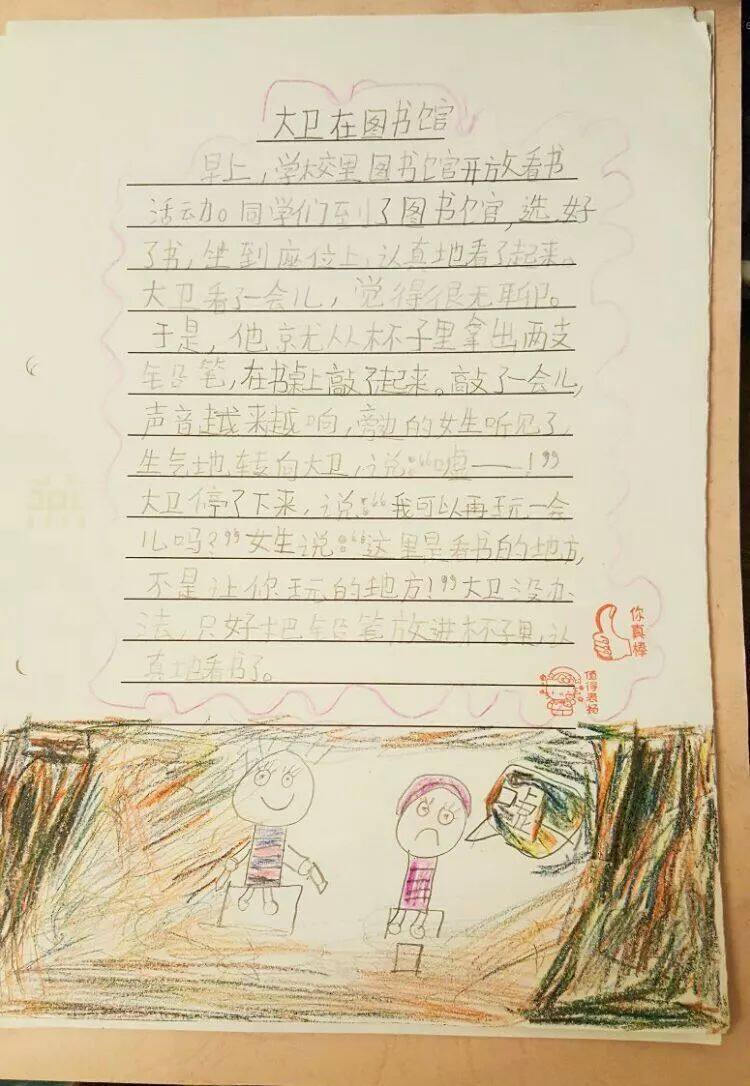 大卫在图书馆
早上，学校里图书馆开放看书
活动。同学们到了图书馆，选好
了书，坐到座位上，认真地看了起来。
大卫看了一会儿，觉得很无聊。
于是，他就从杯子里拿出两支
铅笔，在书桌上敲了起来。敲了一会儿，
声音越来越响，旁边的女生听见了，
生气地转向大卫，说：“嘘——！”
大卫停了下来，说：“我可以再玩一会
儿吗？”女生说：“这里是看书的地方，
不是让你玩的地方！”大卫没办
法，只好把铅笔放进杯子里，认
真地看书了。
你真棒
值得表扬